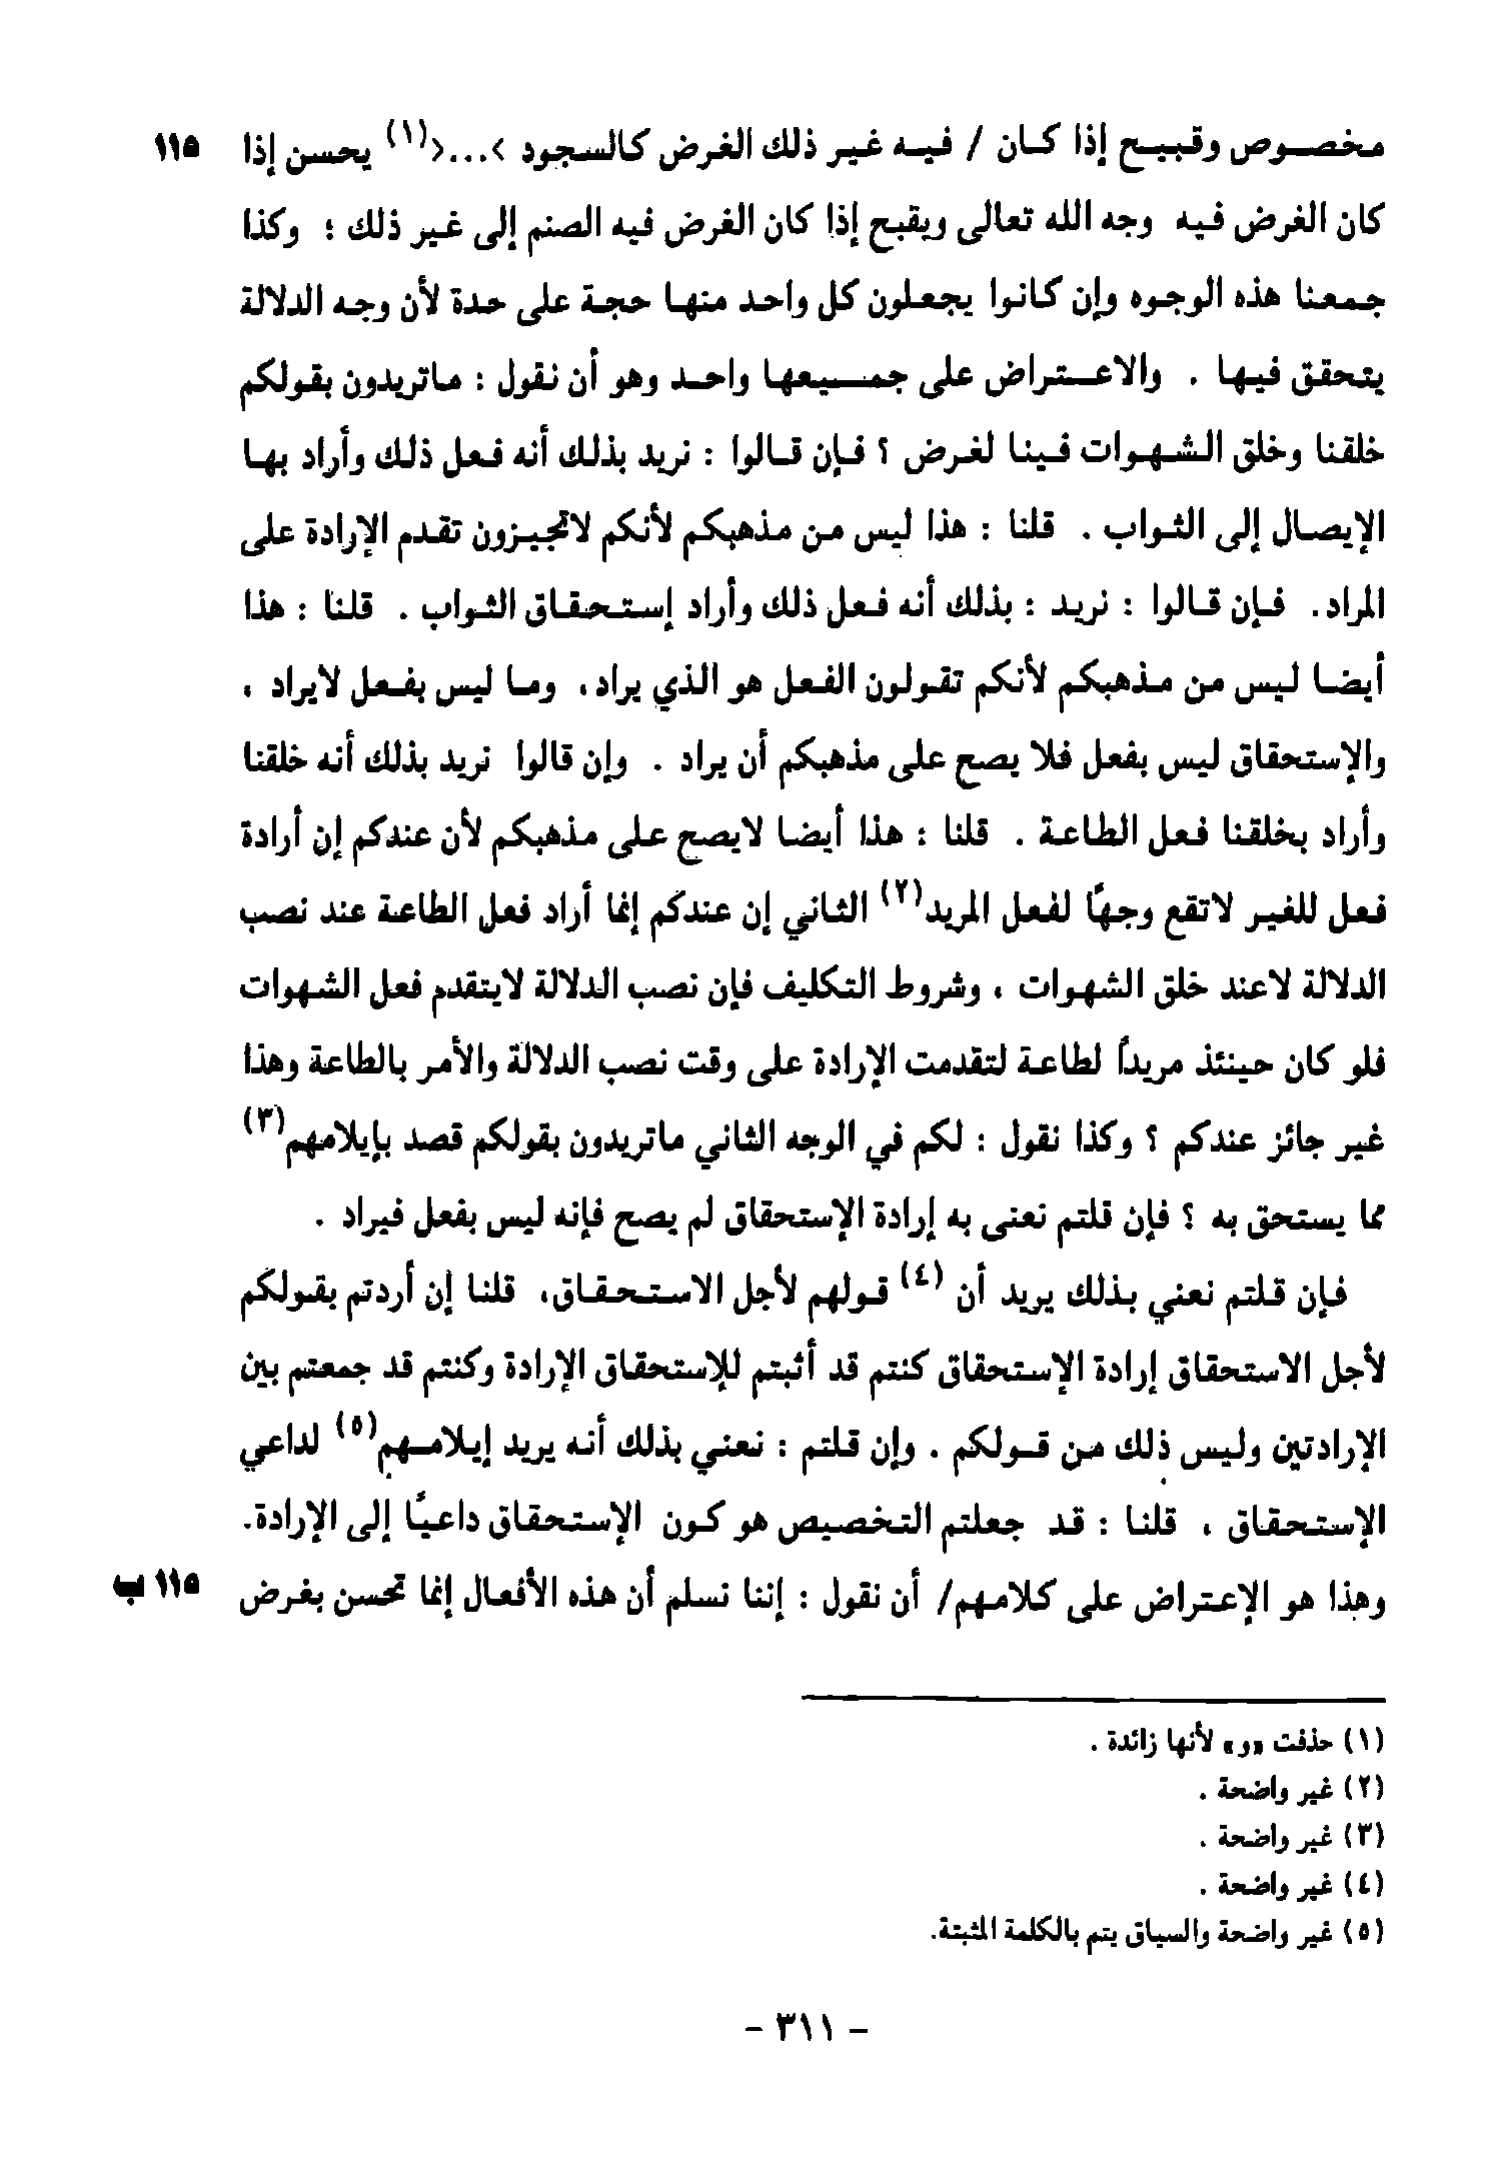 مخصوص وقبيح إذا كان / فيه غير ذلك الغرض كالسجود >...<(١) يحسن إذا ١١٥
كان الغرض فيه وجه الله تعالى ويقبح إذا كان الغرض فيه الصنم إلى غير ذلك ؛ وكذا
جمعنا هذه الوجوه وإن كانوا يجعلون كل واحد منها حجة على حدة لأن وجه الدلالة
يتحقق فيها . والاعتراض على جميعها واحد وهو أن نقول : ماتريدون بقولكم
خلقنا وخلق الشهوات فينا لغرض ؟ فإن قالوا : نريد بذلك أنه فعل ذلك وأراد بها
الإيصال إلى الثواب . قلنا : هذا ليس من مذهبكم لأنكم لاتجيزون تقدم الإرادة على
المراد. فإن قالوا : نريد : بذلك أنه فعل ذلك وأراد إستحقاق الثواب . قلنا : هذا
أيضا ليس من مذهبكم لأنكم تقولون الفعل هو الذي يراد، وما ليس بفعل لايراد ،
والإستحقاق ليس بفعل فلا يصح على مذهبكم أن يراد . وإن قالوا نريد بذلك أنه خلقنا
وأراد بخلقنا فعل الطاعة . قلنا : هذا أيضا لايصح على مذهبكم لأن عندكم إن أرادة
فعل للغير لاتقع وجهًا لفعل المريد(٢) الثاني إن عندكم إنما أراد فعل الطاعة عند نصب
الدلالة لاعند خلق الشهوات ، وشروط التكليف فإن نصب الدلالة لايتقدم فعل الشهوات
فلو كان حينئذ مريداً لطاعة لتقدمت الإرادة على وقت نصب الدلالة والأمر بالطاعة وهذا
غير جائز عندكم ؟ وكذا نقول : لكم في الوجه الثاني ماتريدون بقولكم قصد بإيلامهم(٣)
مما يستحق به ؟ فإن قلتم نعنى به إرادة الإستحقاق لم يصح فإنه ليس بفعل فيراد .
فإن قلتم نعني بذلك يريد أن (٤) قولهم لأجل الاستحقاق، قلنا إن أردتم بقولكم
لأجل الاستحقاق إرادة الإستحقاق كنتم قد أثبتم للإستحقاق الإرادة وكنتم قد جمعتم بين
الإرادتين وليس ذلك من قولكم . وإن قلتم : نعني بذلك أنه يريد إيلامهم(٥) لداعي
الإستحقاق ، قلنا : قد جعلتم التخصيص هو كون الإستحقاق داعيًا إلى الإرادة.
وهذا هو الإعتراض على كلامهم/ أن نقول : إننا نسلم أن هذه الأفعال إنما تحسن بغرض ١١٥ ب
(١) حذفت «و» لأنها زائدة .
(٢) غير واضحة .
(٣) غير واضحة .
(٤) غير واضحة .
(٥) غير واضحة والسياق يتم بالكلمة المثبتة.
- ٣١١ -